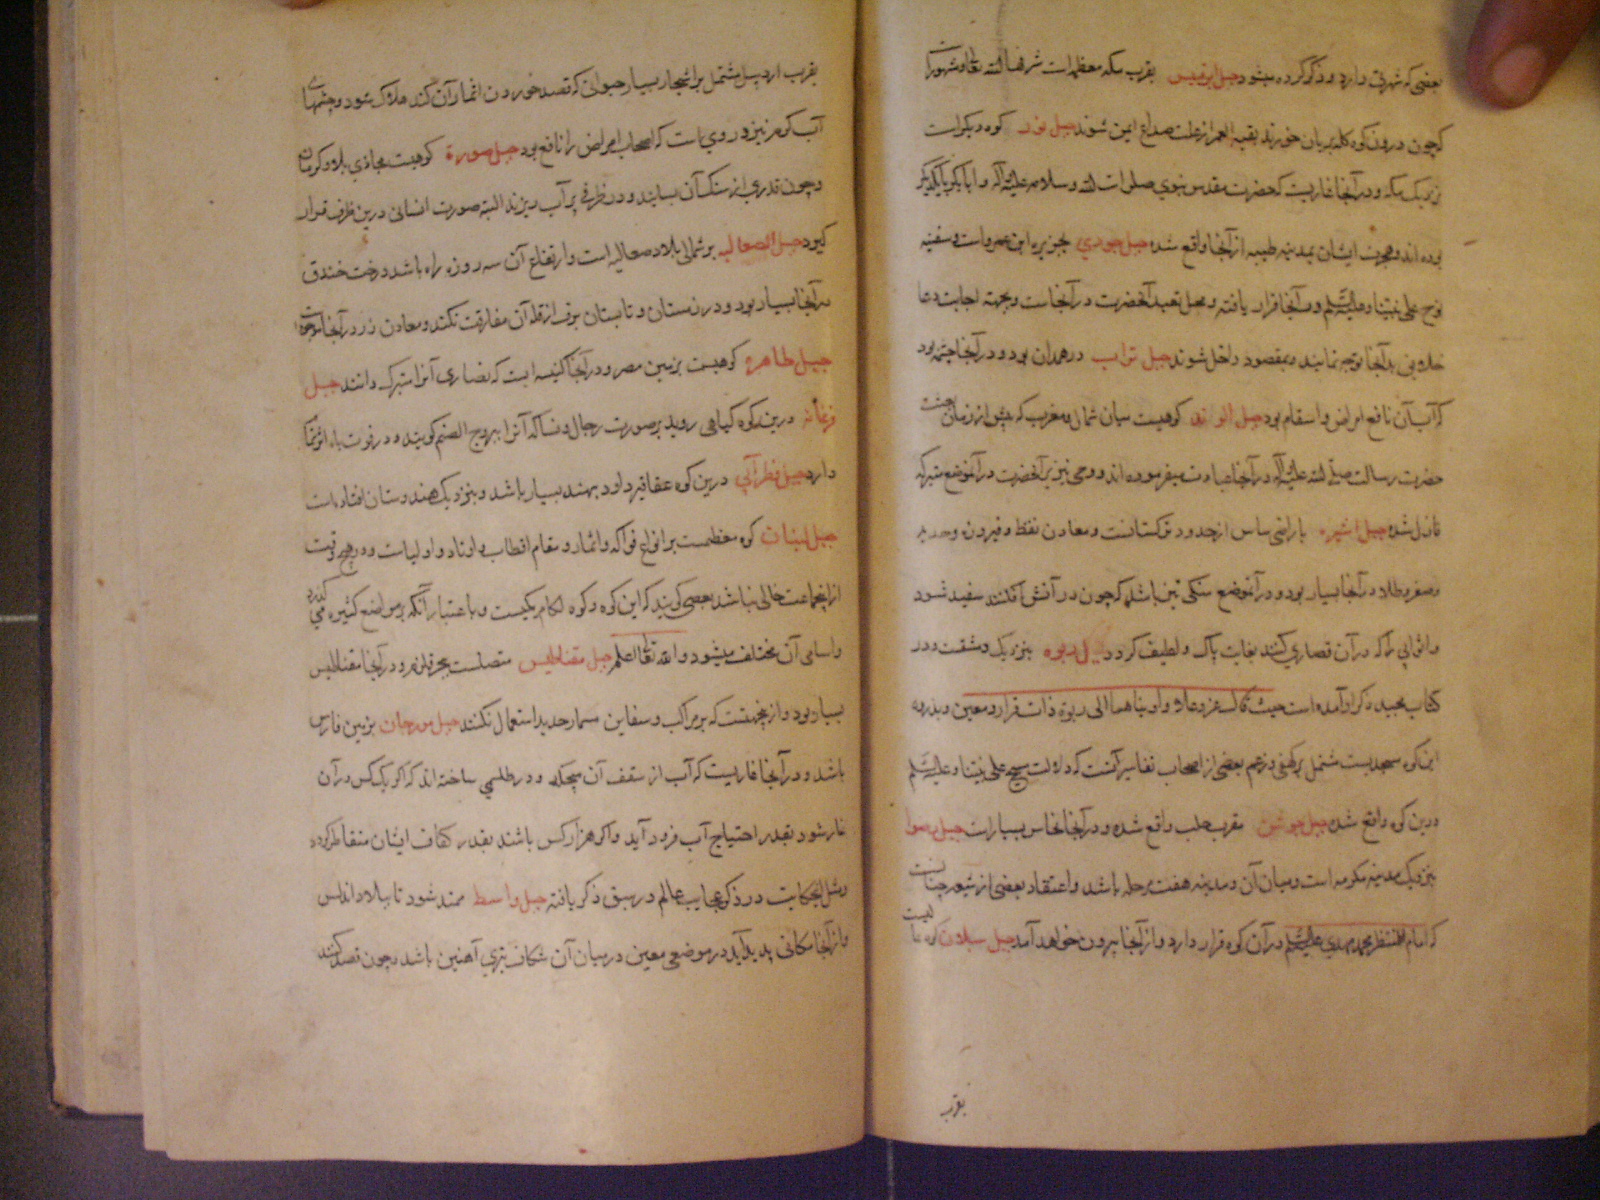 بعضی که شهرتی دارد و ذکر کرده میشود جبل ابو قبیس بقرب مکه معظمه است شرفها الله تعالی و مشهور است
که چون درون کوه کله بریان خورند بقیه العمر از علت صداع ایمن شوند جبل ثور کوه دیگر است
نزدیک مکه و در آنجا غاریست که حضرت مقدس نبوی صلوات الله و سلامه علیه و آله و ابابکر با یکدیگر
بوده اند و هجرت ایشان بمدینه طیبه از آنجا واقع شده جبل جودی بجزیره ابن عمرو است و سفینه
نوح علی نبینا و علیه السلم در آنجا قرار یافته و محل تعبد آنحضرت در آنجاست و بجهته اجابت دعا
خلایق بدآنجا توجه نمایند و بمقصود داخل شوند جبل تراب در همدان بود و در آنجا چشمه بود
که آب آن نافع امراض و اسقام بود جبل الوند کوهیست میان شمال و مغرب که پیش از زمان بعثت
حضرت رسالت صلی الله علیه و آله در آنجا عبادت میفرموده اند و وحی نیز بر آنحضرت در آنموضع متبرکه
نازل شده جبل اشیره باراضی ساس از حدود ترکستانست و معادن نفط و فیروزه و حدید
و صفر و طلا در آنجا بسیار بود و در آنموضع سنگی تیز باشد که چون در آتش افکنند سفید شود
و اثوابی را که در آن قصاری کنند بغایت پاک و لطیف گردد جبل ربوه بنزدیک دمشقست و در
کتاب مجید ذکر او آمده است حیث قال عز و علا و آویناهما الی ربوة ذات قرار و معین و بذروه
این کوه مسجدیست مشتمل بر کهفی و زعم بعضی از اصحاب تفاسیر آنست که ولادت مسیح علی نبینا و علیه السلم
درین کوه واقع شده جبل جوشن بقرب حلب واقع شده و در آنجا نحاس بسیار است جبل رضوا
بنزدیک مدینه مکرمه است و میان آن و مدینه هفت مرحله باشد و اعتقاد بعضی از شیعه چنانست
که امام المنتظر محمد مهدی علیه السلم در آن کوه قرار دارد و از آنجا بیرون خواهد آمد جبل سبلان کوهیست
بقرب
بقرب اردبیل مشتمل بر اشجار بسیار حیوانی که قصد خوردن اثمار آن کند هلاک شود و چشمهای
آب گرم نیز در وی است که اصحاب امراض را نافع بود جبل صورة کوهیست محاذی بلاد کرمان
و چون قدری از سنگ آن بسایند و در ظرفی پر آب ریزند البته صورت انسانی درین ظرف قرار
گیرد جبل الصعالیه بر شمالی بلاد صعالیه است و ارتفاع آن سه روزه راه باشد درخت خندق
در آنجا بسیار بود و در زمستان و تابستان برف از قله آن مفارقت نکند و معادن زر در آنجا موجود است
جبل طاهره کوهیست بزمین مصر و در آنجا کنیسه ایست که نصاری آنرا متبرک دانند جبل
فرغانه درین کوه گیاهی روید بر صورت رجال و نسا که آنرا یبروج الصنم گویند و در قوت باه اثر تمام
دارد جبل درین کوه عقاقیر داود بهند بسیار باشد و بنزدیک هندوستان افتاده است
جبل لبنان کوه معظمست بر انواع فواکه و اثمار و مقام اقطاب و اوتاد و اولیاست و در هیچ وقت
از اینجماعت خالی نباشد بعضی گویند که این کوه و کوه لکام یکیست و باعتبار آنکه بر مواضع کثیره می گذرد
و اسامی آن مختلف میشود والله تعالی اعلم جبل مقناطیس متصلست ببحر قلزم و در آنجا مقناطیس
بسیار بود و از ینجهتست که بر مراکب و سفاین مسمار حدید استعمال نکنند جبل مورجان بزمین فارس
باشد و در آنجا غاریست که آب از سقف آن میچکد و در طلسمی ساخته اند که اگر یک کس در آن
غار شود بقدر احتیاج آب فرود آید و اگر هزار کس باشند بقدر کفاف ایشان متقاطر گردد
و مثل اینحکایت در ذکر عجایب عالم در سبق ذکر یافته جبل واسط ممتد شود تا ببلاد اندلس
و از آنجا مکانی پدید آید در موضعی معین در میان آن شکاف تبری آهنین باشد و چون قصد کنند